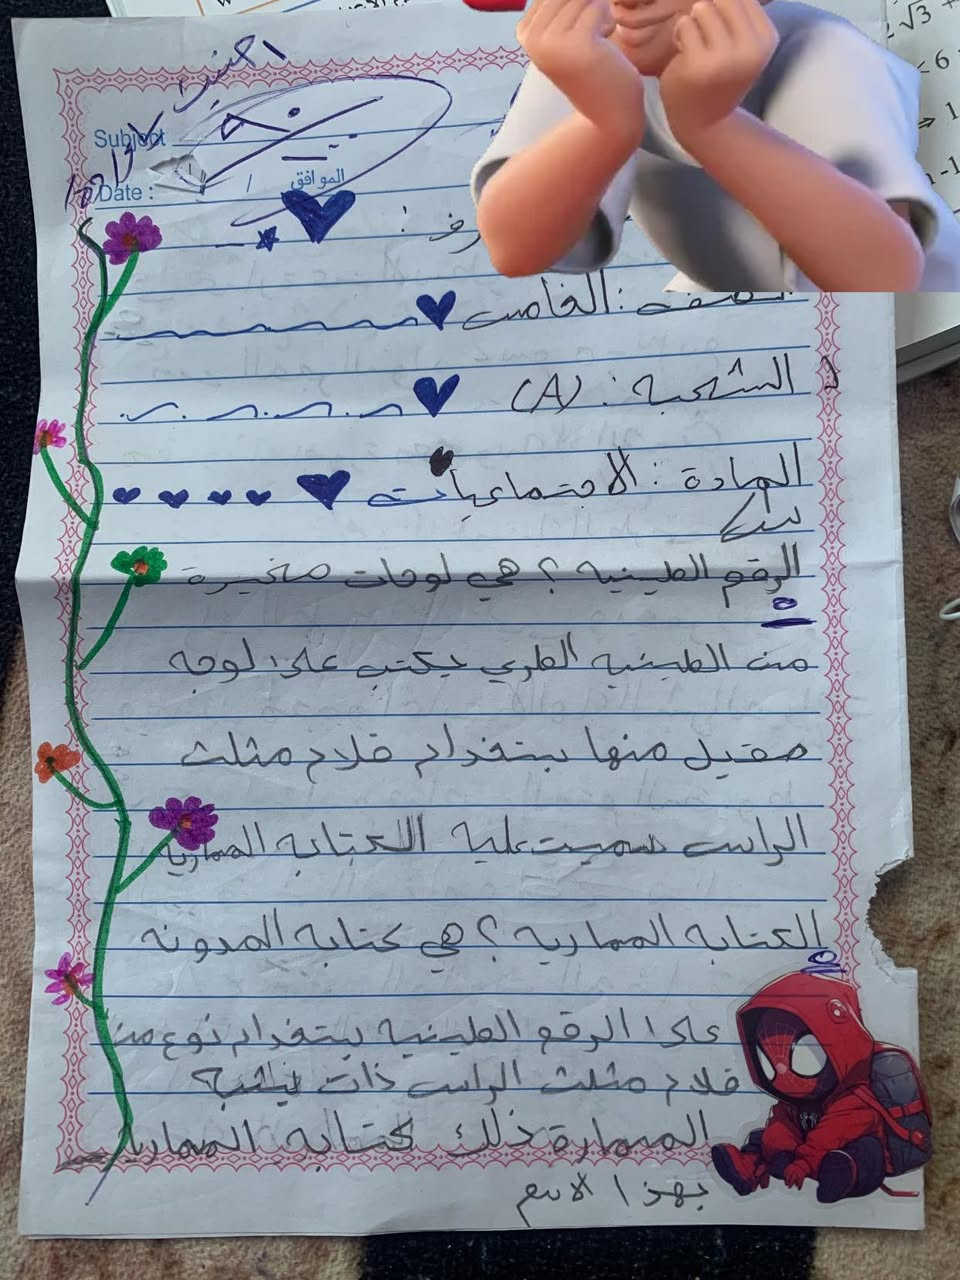 Subject
Date : / الموافق
الصف : الخامس
الشعبة : (A)
المادة : الاجتماعيات
الرقم الطينيه ؟ هي لوحات صغيرة
من الطينيه الطري يكتب على لوحه
صقيل منها بستخدام قلام مثلث
الراس سميت عليه الكتابه المسماريه
الكتابه المسماريه ؟ هي كتابه المدونه
على الرقم الطينيه بستخدام نوع من
قلام مثلث الراس ذات يشبه
المسمارة ذلك كتابه المسماريا
بهذا الاسم
√3 +
< 6
⇒ 1